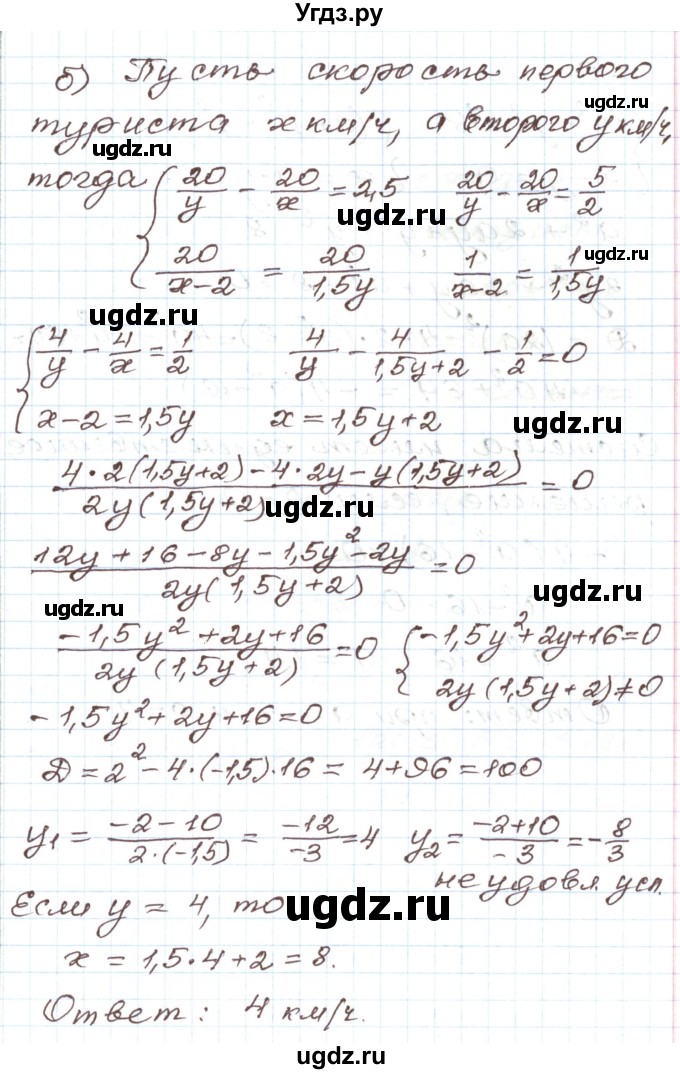 Угдз.ру
б) Пусть скорость первого
туриста x км/ч, а второго y км/ч,
ugdz.ru
ugdz.ru
тогда { 20/y - 20/x = 2,5   20/y - 20/x = 5/2
ugdz.ru
20/(x-2) = 20/(1,5y)   1/(x-2) = 1/(1,5y)
ugdz.ru
ugdz.ru
{ 4/y - 4/x = 1/2   4/y - 4/(1,5y+2) - 1/2 = 0
x-2=1,5y   x=1,5y+2
ugdz.ru
(4·2(1,5y+2)-4·2y-y(1,5y+2))/(2y(1,5y+2)) = 0
ugdz.ru
(12y+16-8y-1,5y²-2y)/(2y(1,5y+2)) = 0
ugdz.ru
ugdz.ru
(-1,5y²+2y+16)/(2y(1,5y+2)) = 0   { -1,5y²+2y+16=0
2y(1,5y+2)≠0
-1,5y²+2y+16=0
ugdz.ru
Д=2²-4·(-1,5)·16= 4+96=100
y₁= (-2-10)/(2·(-1,5)) = -12/-3 = 4   y₂= (-2+10)/-3 = -8/3
не удовл. усл.
Если y = 4, то
ugdz.ru
x = 1,5·4+2=8.
ugdz.ru
Ответ: 4 км/ч.
ugdz.ru